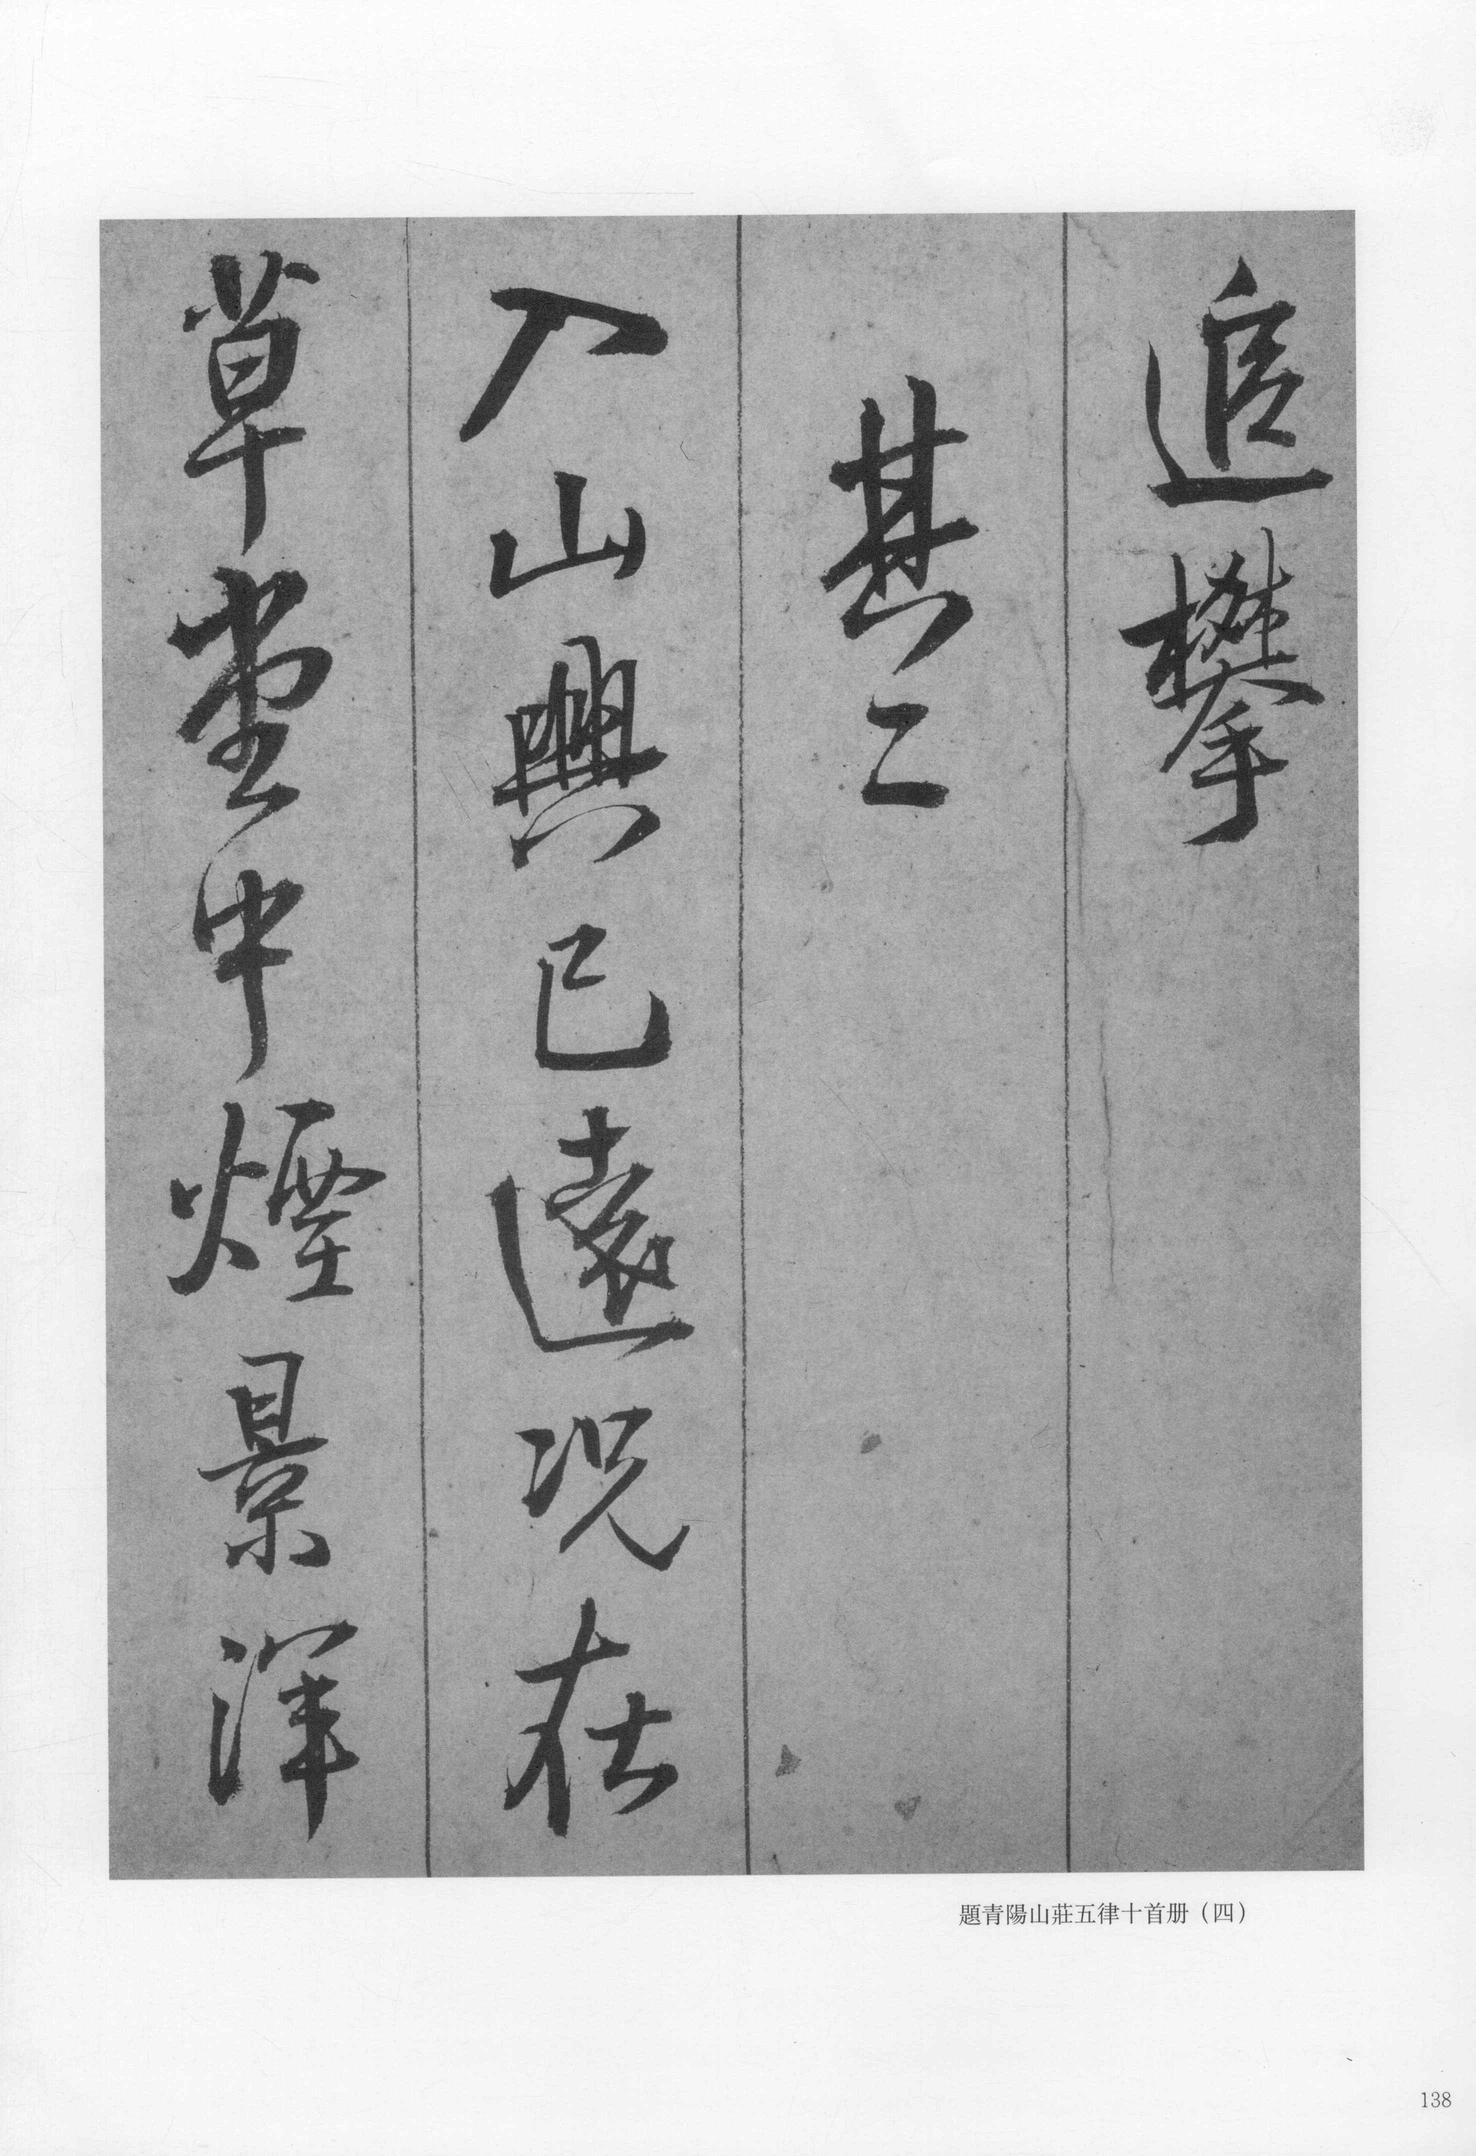 追攀
其二
入山興已遠況在
草堂中煙景渾
題青陽山莊五律十首册（四）
138